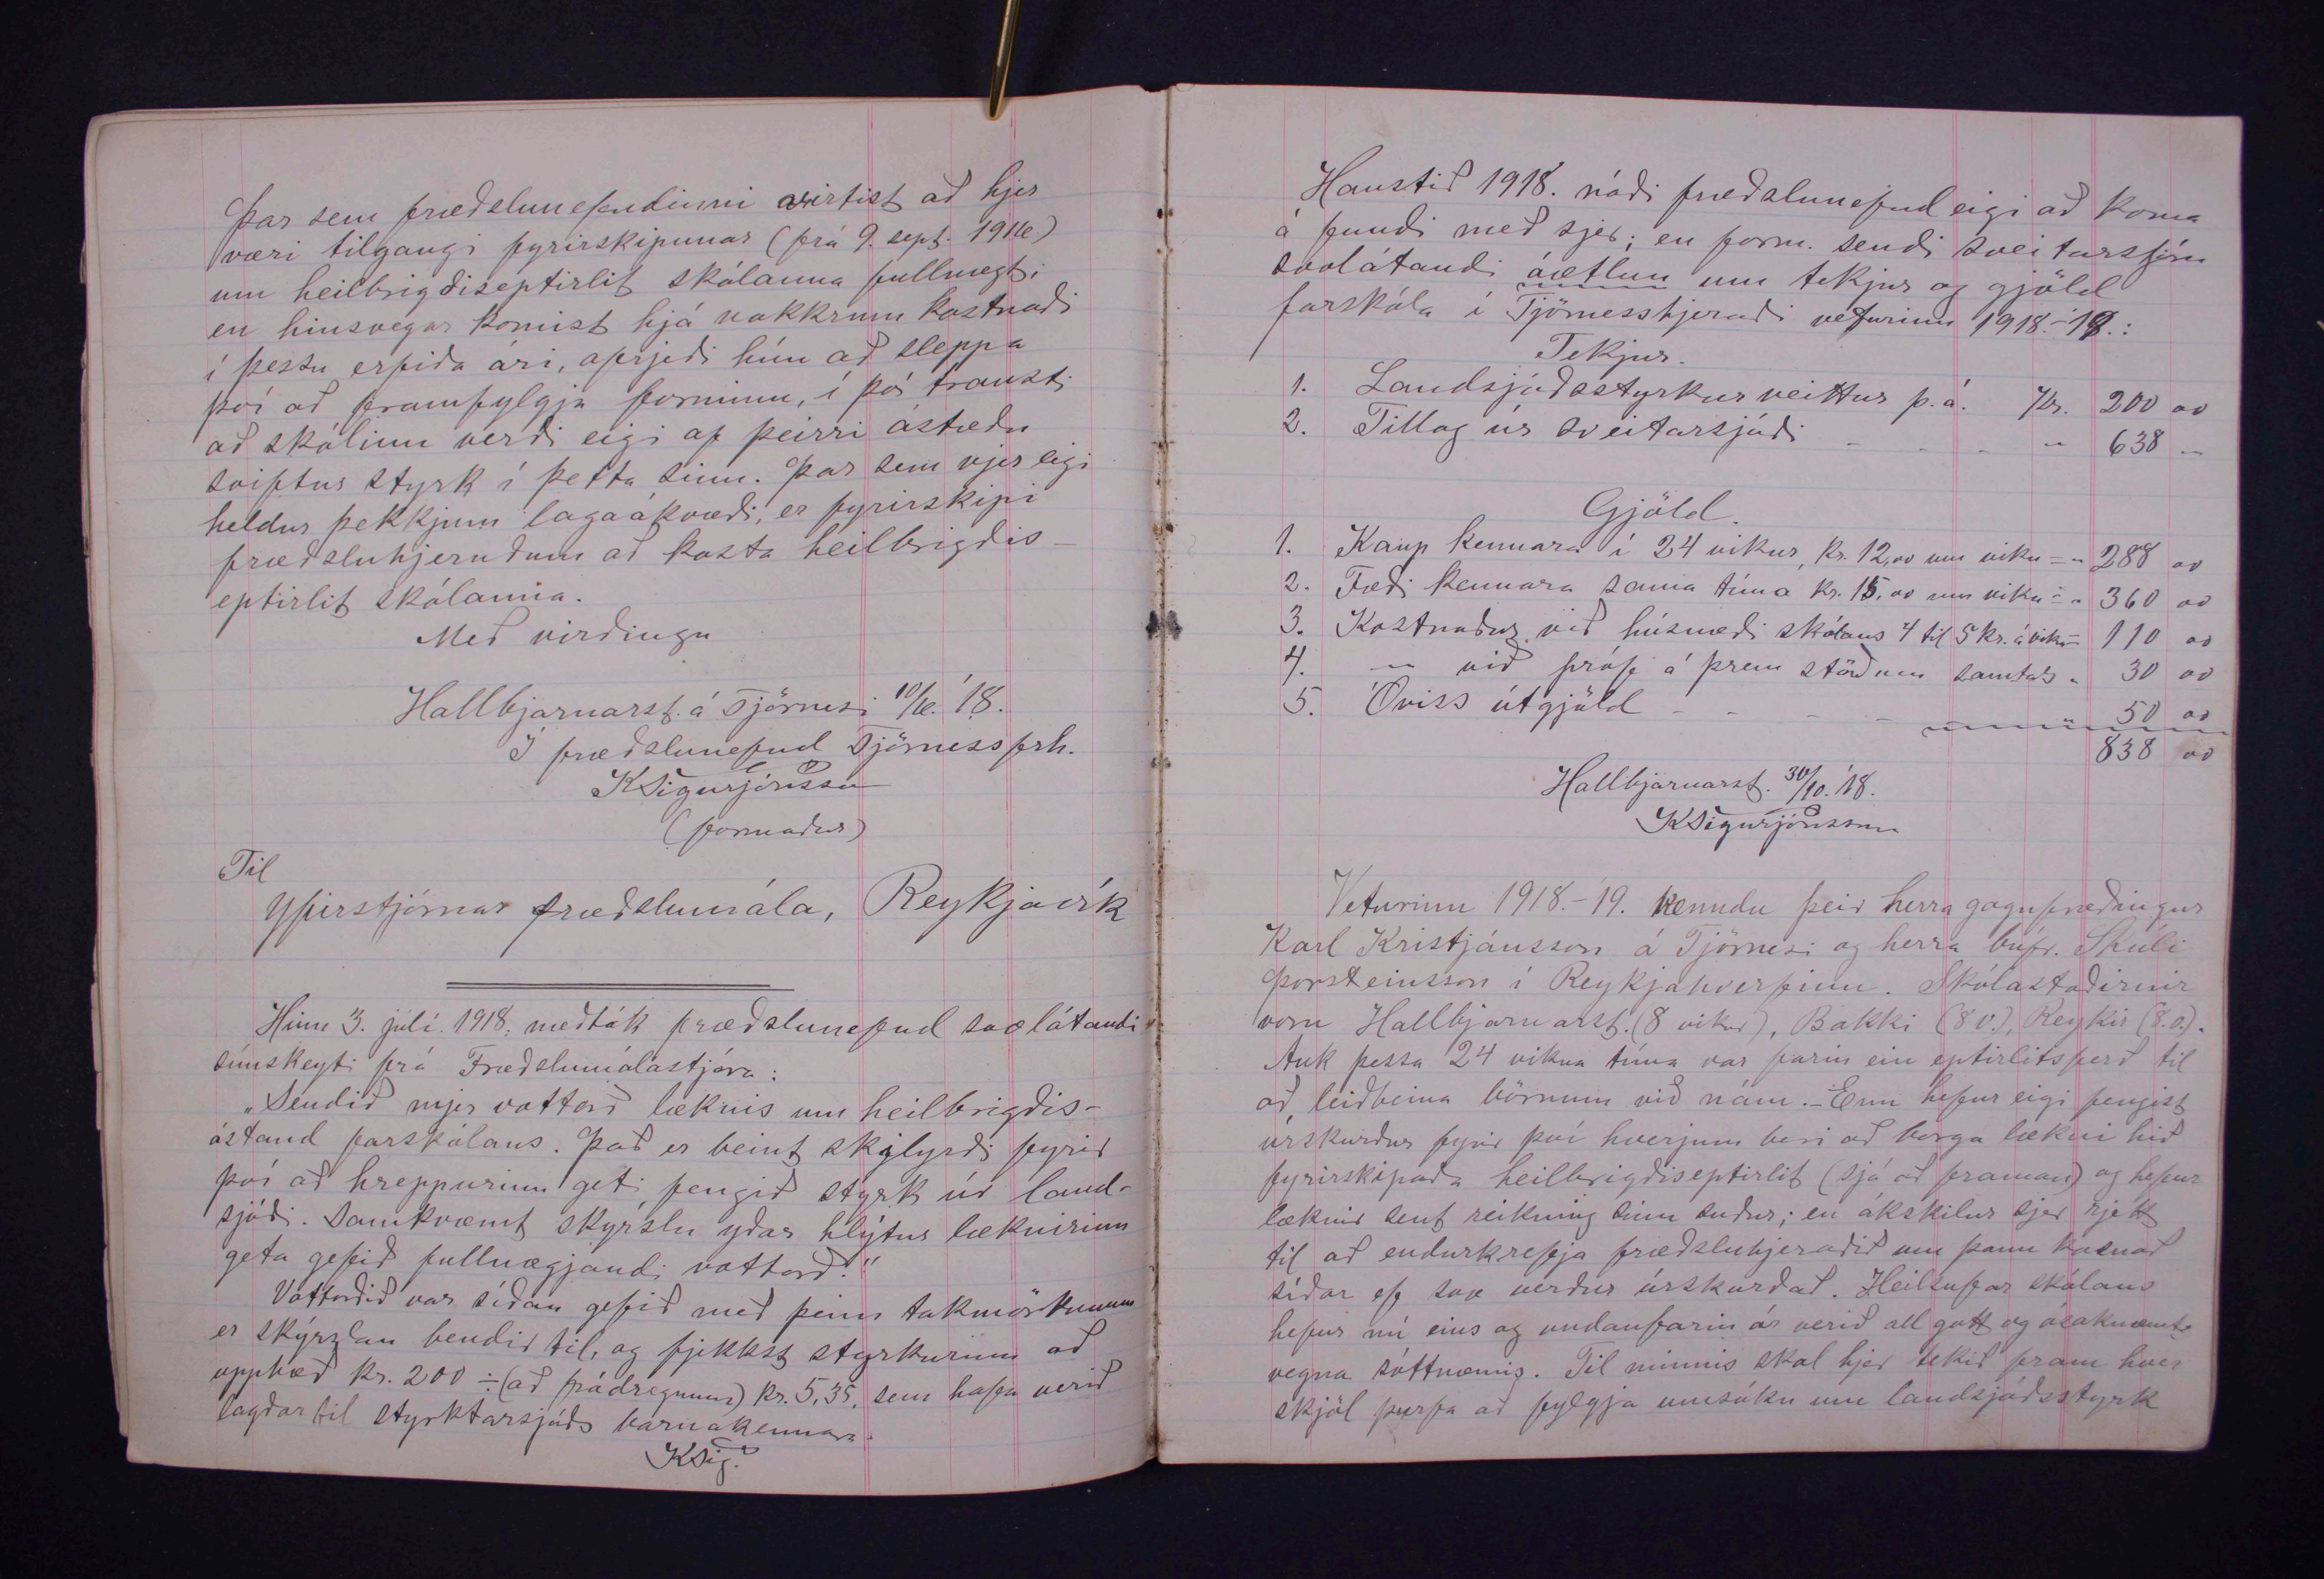 Þar sem fræðslunefndinni virtist að hjer
væri tilgangi fyrirskipunar (frá 9. sept. 1916)
um heilbrigðiseptirlit skólanna fullnægt,
en hinsvegar komist hjá nokkrum kostnaði
í þessu erfiða ári, afrjeði hún að sleppa
því að framfylgja forminu, í því trausti
að skólinn verði eigi af þeirri ástæðu
sviptur styrk í þetta sinn. Þar sem vjer eigi
heldur þekkjum lagaákvæði, er fyrirskipi
fræðsluhjeruðum að kosta heilbrigðis-
eptirlit skólanna.
Með virðingu
Hallbjarnarst. á Tjörnesi 10/6. '18.
Í fræðslunefnd Tjörnessfrh.
KSigurjónsson
(formaður)
Til
Yfirstjórnar fræðslumála, Reykjavík
Hinn 3. júlí. 1918. meðtók fræðslunefnd svolátandi
símskeyti frá Fræðslumálastjóra:
„Sendið mjer vottorð læknis um heilbrigðis-
ástand farskólans. Það er beint skilyrði fyrir
því að hreppurinn geti fengið styrk úr land-
sjóði. Samkvæmt skyrslu yðar hlýtur læknirinn
geta gefið fullnægjandi vottorð."
Vottorðið var síðan gefið með þeim takmörkunum
er skýrzlan bendir til, og fjekkst styrkurinn að
upphæð kr. 200 ÷ (að frádregnum) kr. 5,35, sem hafa verið
lagðar til styrktarsjóðs barnakennara.
KSig.
Haustið 1918. náði fræðslunefnd eigi að koma
á fundi með sjer; en form. sendi sveitarstjórn
svolátandi áætlun um tekjur og gjöld
farskóla í Tjörnesshjeraði veturinn 1918.-19.:
Tekjur.
1. Landsjóðsstyrkur veittur þ.á. Kr. 200 00
2. Tillag úr sveitarsjóði - - - „ 638 „
Gjöld.
1. Kaup kennara í 24 vikur, kr. 12,00 um viku = „ 288 00
2. Fæði kennara sama tíma kr. 15,00 um viku = „ 360 00
3. Kostnaður við húsnæði skólans 4 til 5 kr. á viku = 110 00
4. „ við próf á þrem stöðum samtals „ 30 00
5. Óviss útgjöld - - - - 50 00
838 00
Hallbjarnarst. 30/10. '18.
KSigurjónsson
Veturinn 1918.-'19. kenndu þeir herra gagnfræðingur
Karl Kristjánsson á Tjörnesi og herra búfr. Skúli
Þorsteinsson í Reykjahverfinu. Skólastaðirnir
voru Hallbjarnarst. (8 vikur), Bakki (8 v.), Reykir (8.v.).
Auk þessa 24 vikna tíma var farin ein eptirlitsferð til
að leiðbeina börnum við nám. - Enn hefur eigi fengist
úrskurður fyrir því hverjum beri að borga lækni hið
fyrirskipaða heilbrigðiseptirlit (sjá að framan) og hefur
læknir sent reikning sinn suður; en áskilur sjer rjett
til að endurkrefja fræðsluhjeraðið um þann kosnað
síðar ef svo verður úrskurðað. Heilsufar skólans
hefur nú eins og undanfarin ár verið all gott og ósaknæmt
vegna sóttnæmis. Til minnis skal hjer tekið fram hver
skjöl þurfa að fylgja umsókn um landsjóðsstyrk